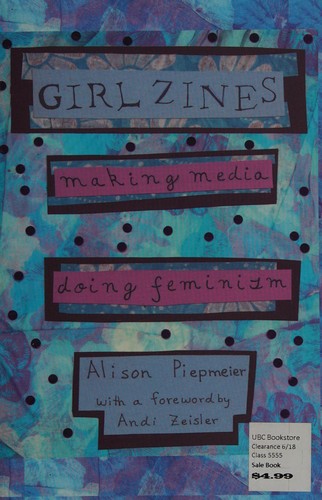 GIRL ZINES
making media
doing feminism
Alison Piepmeier
with a foreword by
Andi Zeisler
UBC Bookstore
Clearance 6/18
Class 5555
Sale Book
$4.99